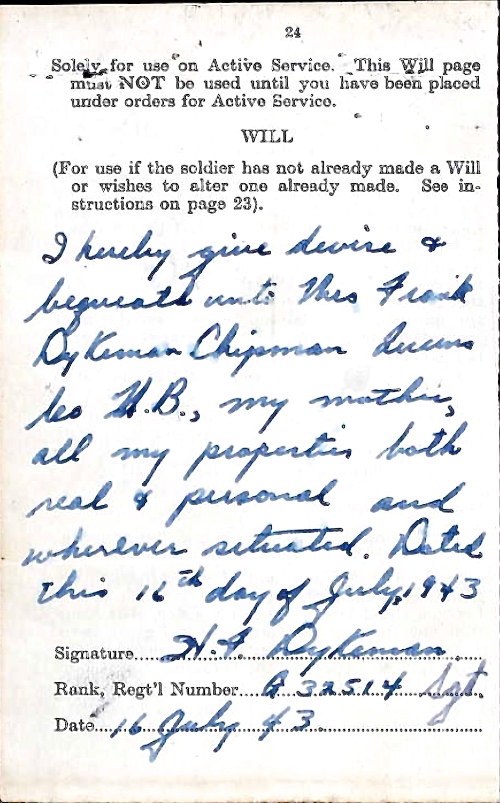 24
Solely for use on Active Service. This Will page
must NOT be used until you have been placed
under orders for Active Service.
WILL
(For use if the soldier has not already made a Will
or wishes to alter one already made. See in-
structions on page 23).
I hereby give devise &
bequeath unto Mrs Frank
Dykeman Chipman Queens
Co N.B., my mother,
all my properties both
real & personal and
wherever situated. Dated
this 16th day of July, 1943
Signature H. F. Dykeman
Rank, Regt'l Number G 32514 Sgt
Date 16 July 43